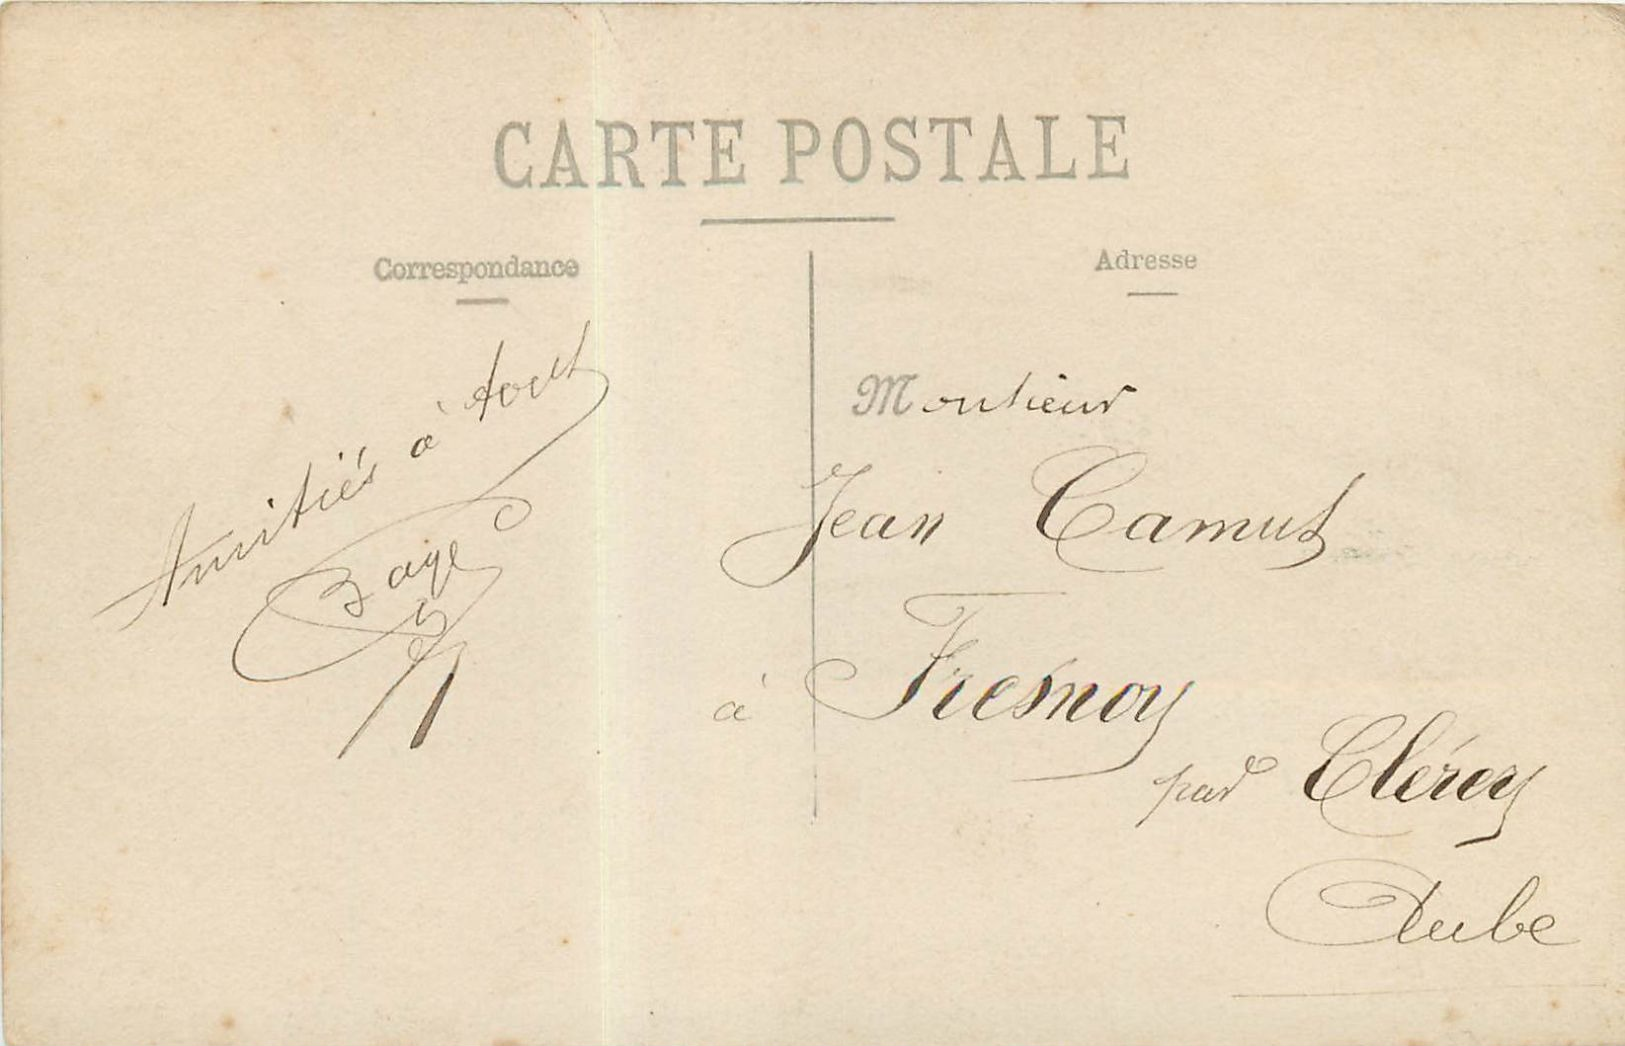 CARTE POSTALE
Correspondance
Amitiés à tous
Adresse
Monsieur
Jean Camus
à Fresnoy
par Clérey
Aube